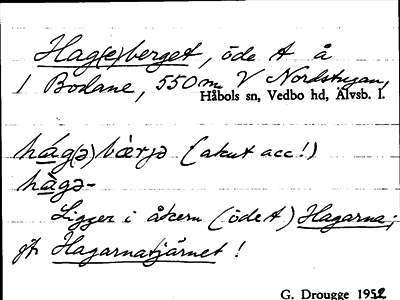 Hag(e)berget, öde t å
1 Bodane, 550 m V Nordstugan,
Håbols sn, Vedbo hd, Älvsb. l.
hág(ə)bær̀jə (akut acc!)
hàgə-
Ligger i åkern (öde t) Hagarna;
jfr Hagarnatjärnet!
G. Drougge 1952